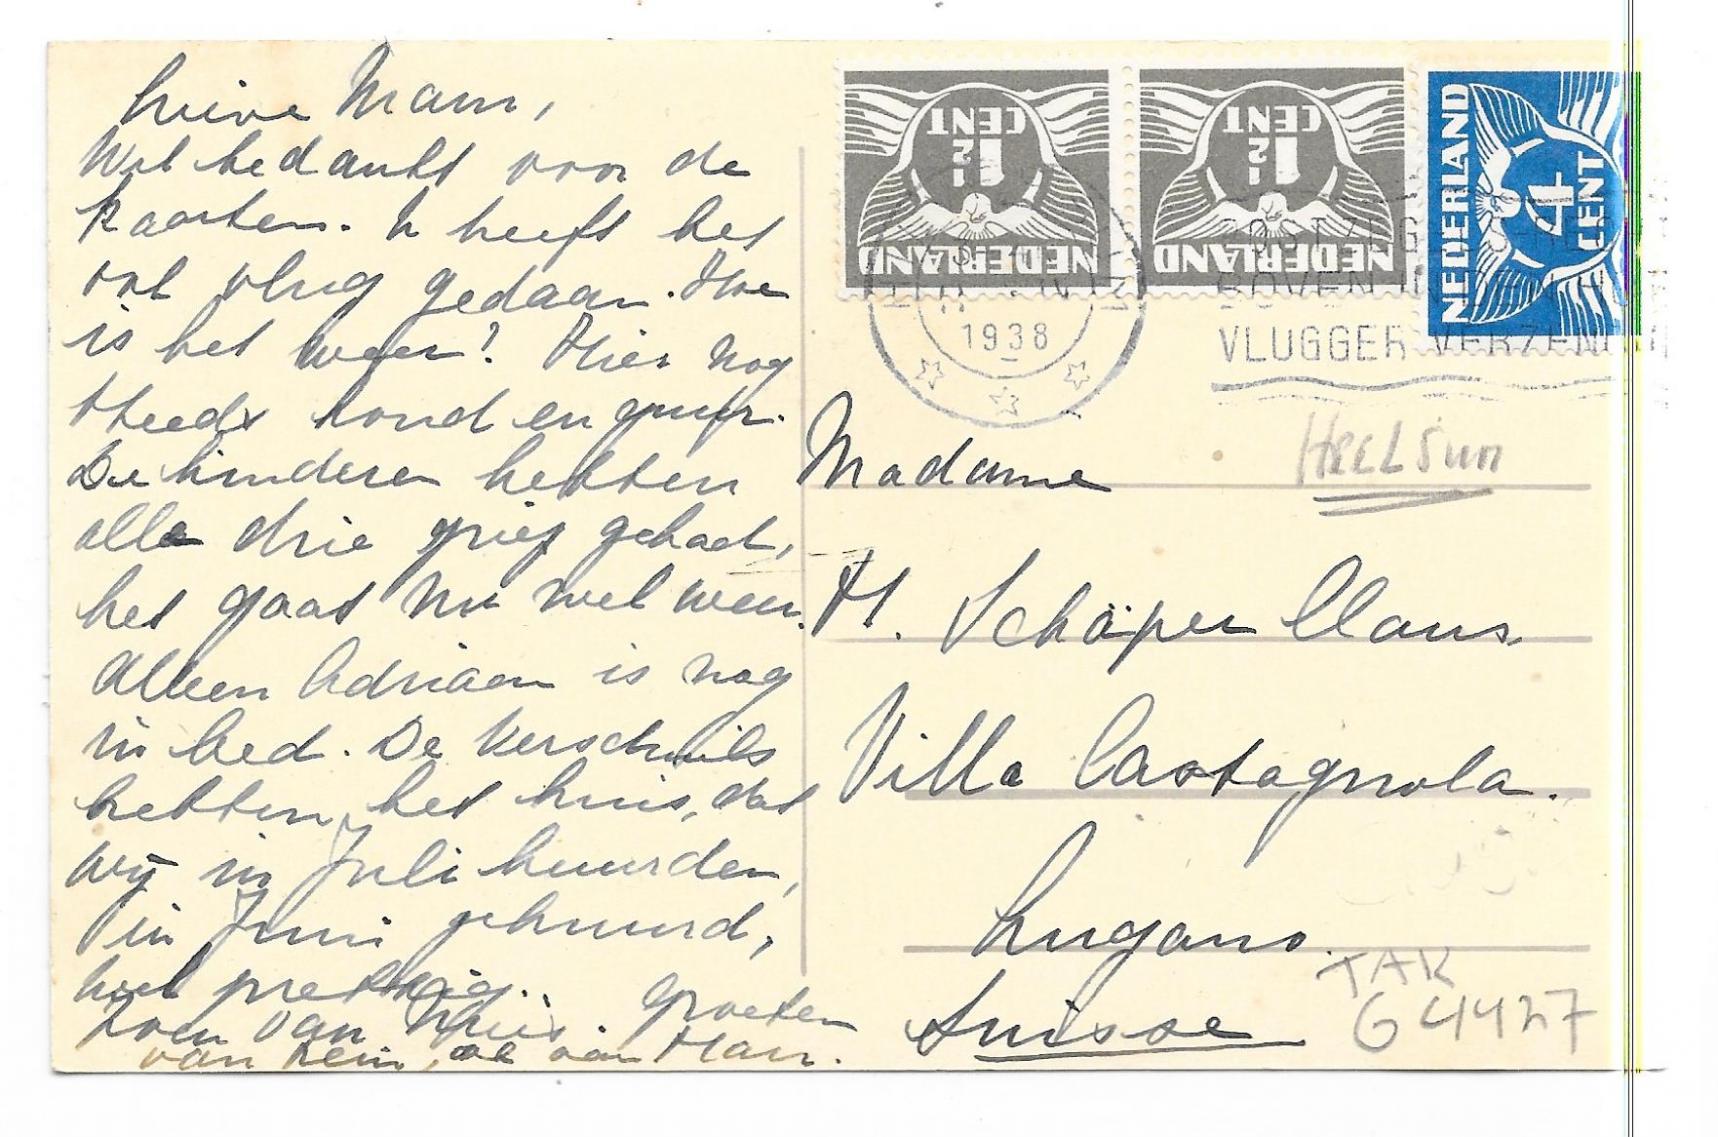 Lieve Mam,
Wel bedankt voor de
kaarten. U heeft het
ook vlug gedaan. Hoe
is het weer? Hier nog
steeds koud en guur.
De kinderen hebben
alle drie griep gehad,
het gaat nu wel weer.
Alleen Adriaan is nog
in bed. De Verschuils
hebben het huis, dat
wij in Juli huurden,
in Juni gehuurd,
heel prettig. Groeten
Zoen van Mies.
van Rein, ook van Han.
NEDERLAND
1½
CENT
NEDERLAND
1½
CENT
NEDERLAND
4
CENT
1938
BOVEN IN DEN H
VLUGGER VERZEND
Heelsum
Madame
H. Schäper Claus
Villa Castagnola.
Lugano.
Suisse
TAK
G 4427